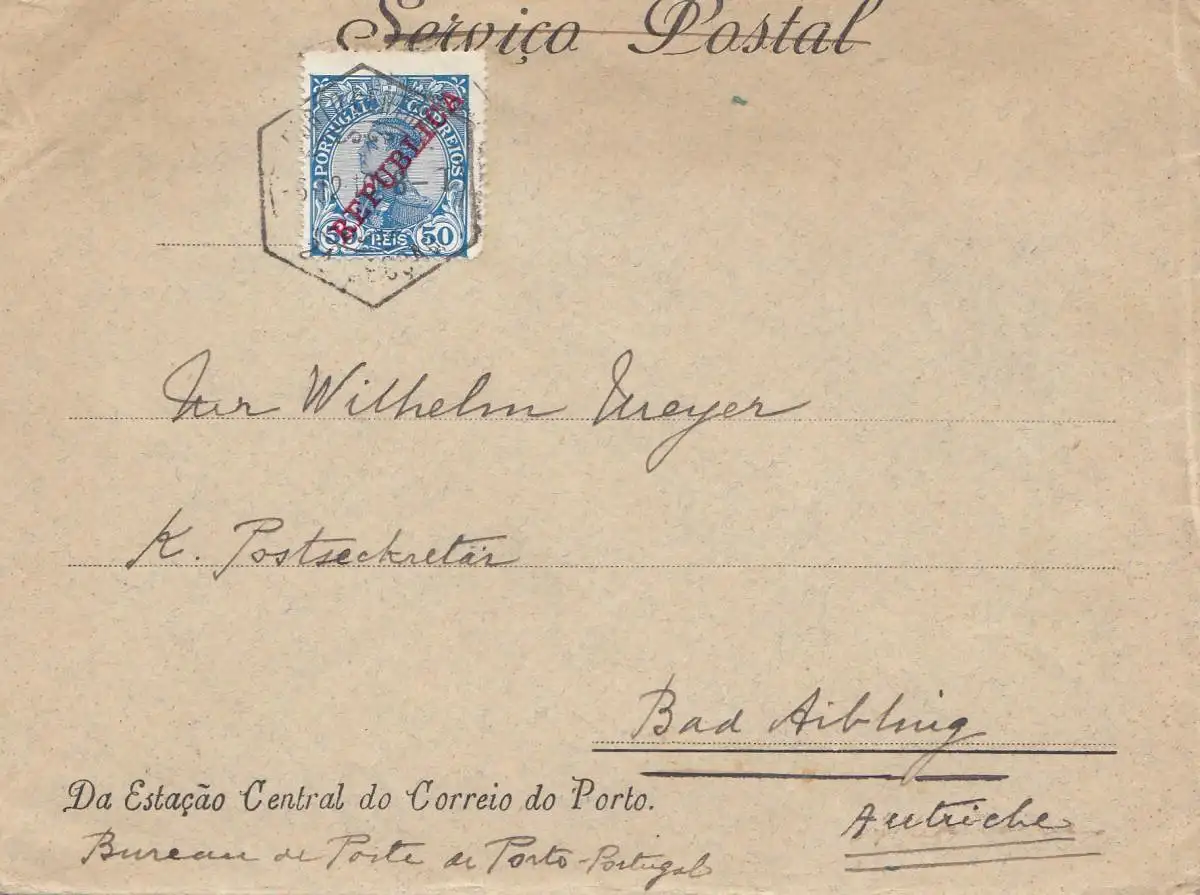 Serviço Postal
PORTUGAL CORREIOS
REPUBLICA
50 REIS 50
Herr Wilhelm Meyer
K. Postseckretär
Bad Aibling
Da Estação Central do Correio do Porto.
Autriche
Bureau de Poste de Porto-Portugal